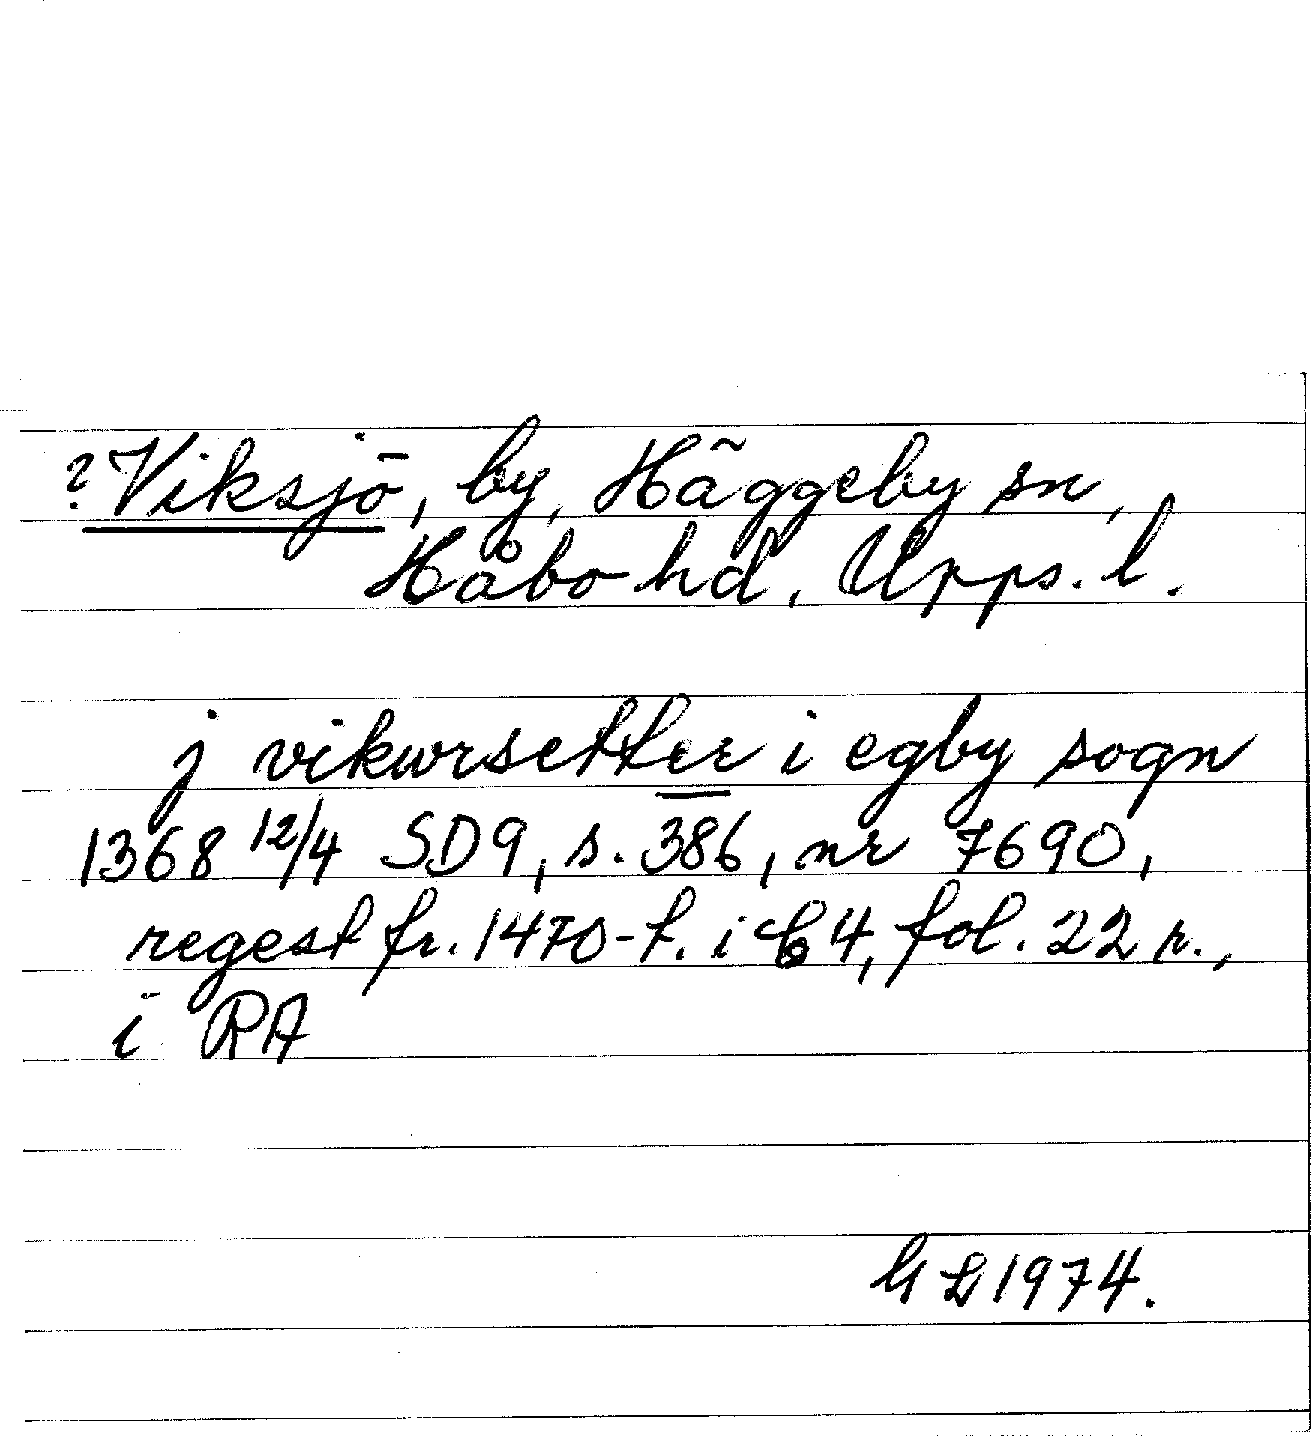 ? Viksjö, by, Häggeby sn,
Håbo hd, Upps. l.
j vikursetter i egby sogn
1368 12/4 SD9, s. 386, nr 7690,
regest fr. 1470-t. i C4, fol. 22 r.,
i RA
1974.